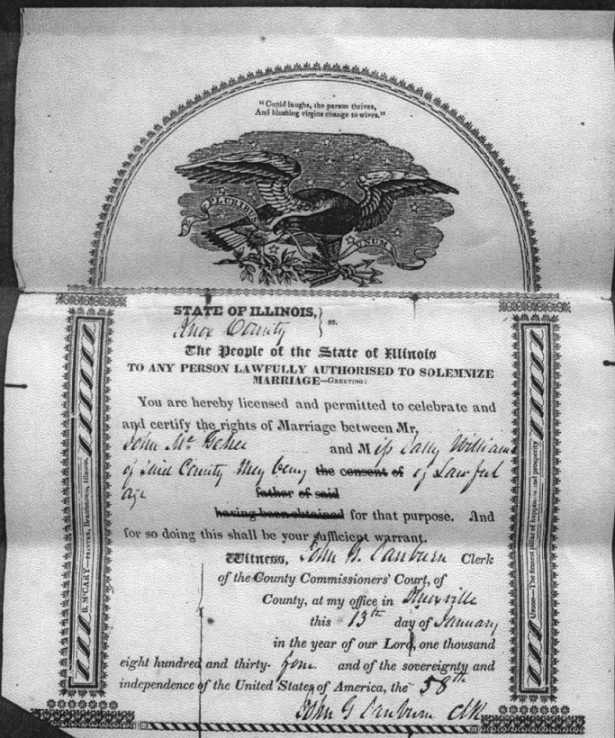 "Cupid laughs, the parson thrives,
And blushing virgins change to wives."
E PLURIBUS UNUM
STATE OF ILLINOIS, } ss.
Knox County
The People of the State of Illinois
TO ANY PERSON LAWFULLY AUTHORISED TO SOLEMNIZE
MARRIAGE—GREETING:
You are hereby licensed and permitted to celebrate and
and certify the rights of Marriage between Mr,
John McGehee and Miss Sally Williams
of said County they being the consent of of Lawful
age father of said
having been obtained for that purpose. And
for so doing this shall be your sufficient warrant.
Witness, John G. Sanburn Clerk
of the County Commissioners' Court, of
County, at my office in Knoxville
this 13th day of January
in the year of our Lord, one thousand
eight hundred and thirty- four and of the sovereignty and
independence of the United States of America, the 58th
John G Sanburn Clk
R. M'CARY—PRINTER, Illinois.
and prosperity